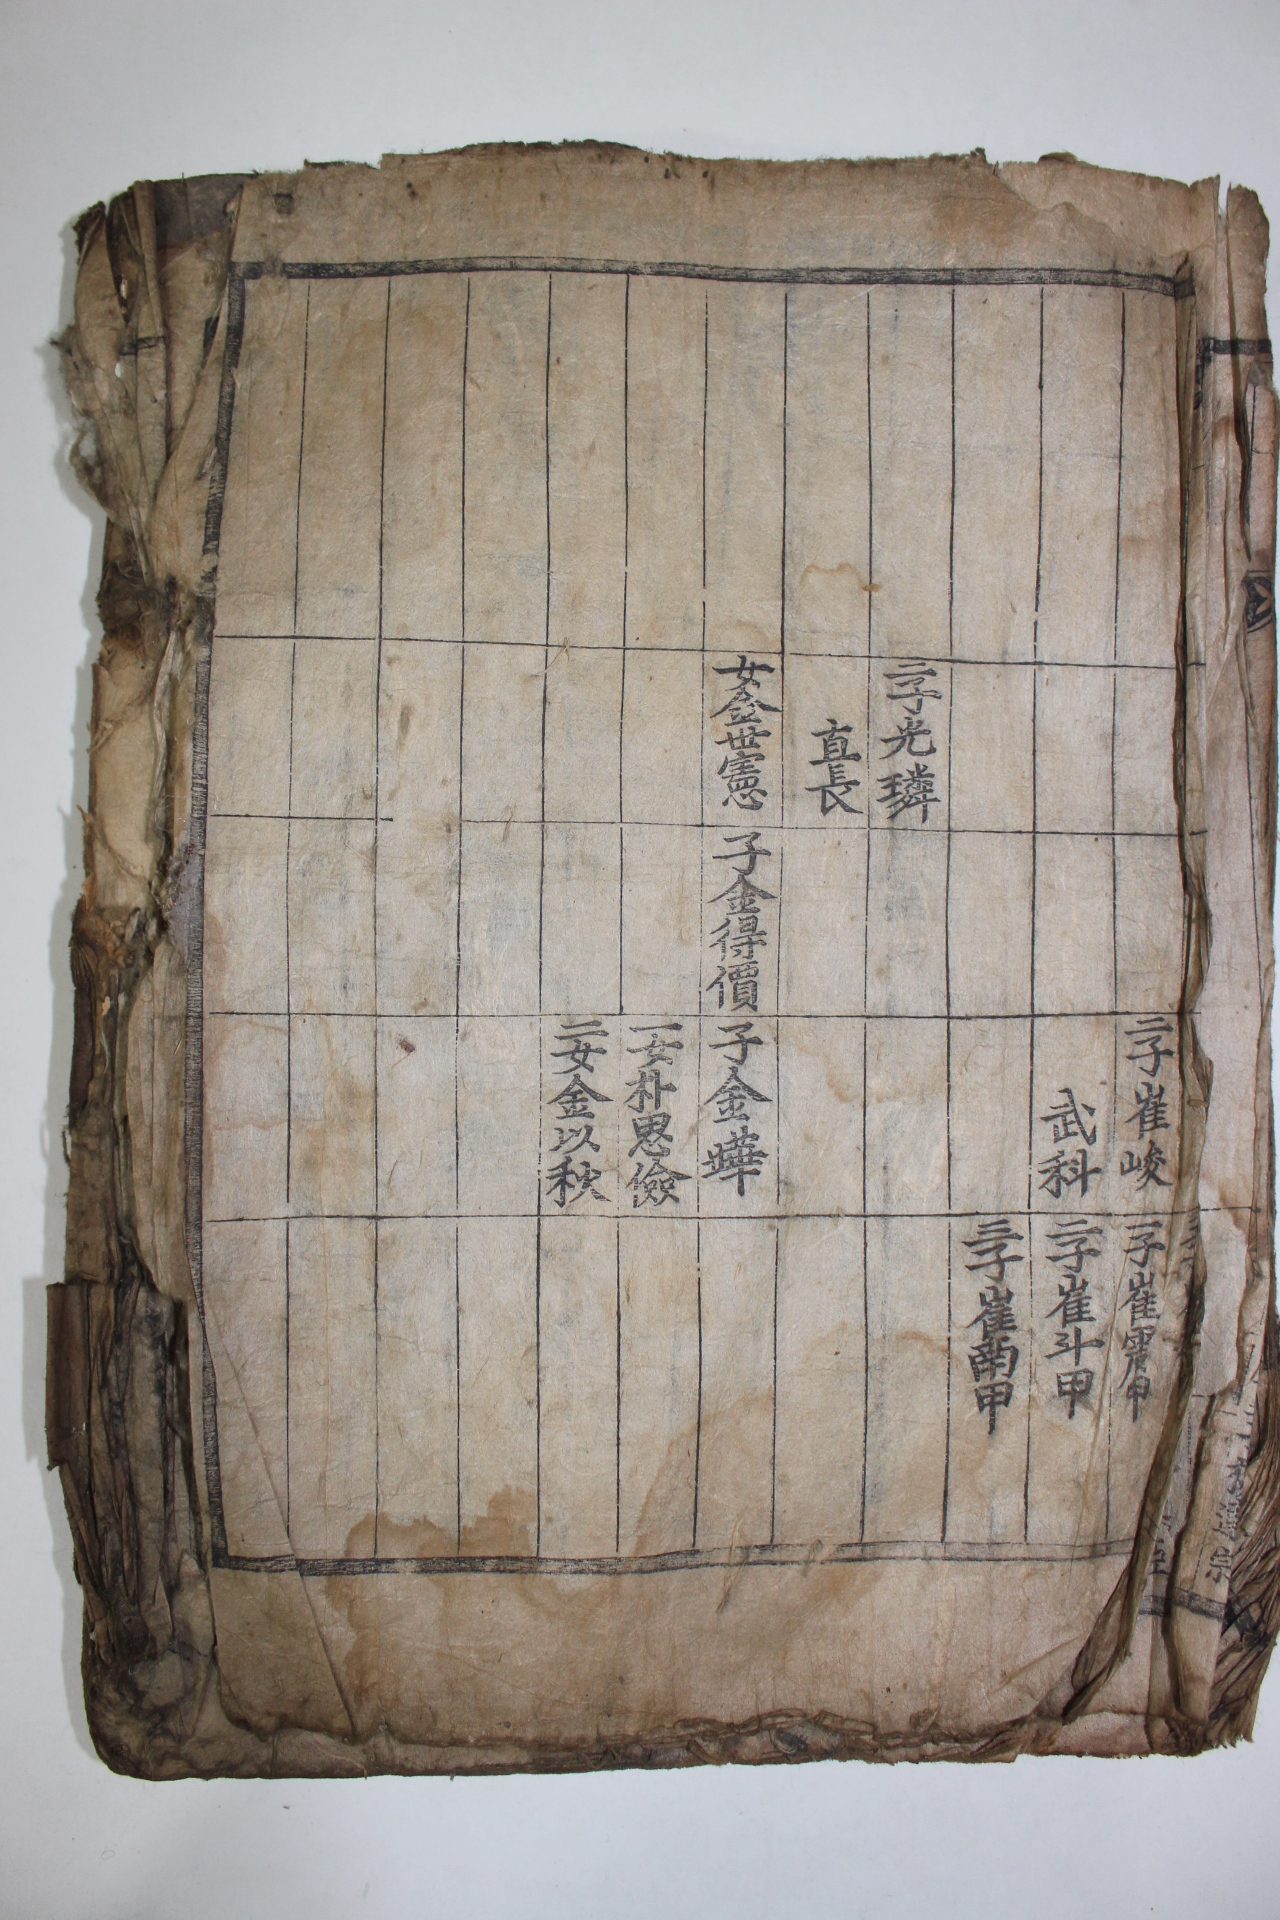 二子崔峻
武科
一子崔震甲
二子崔斗甲
三子崔南甲
二子光璘
直長
女金世憲
子金得價
子金鏵
一女朴思儉
二女金以秋